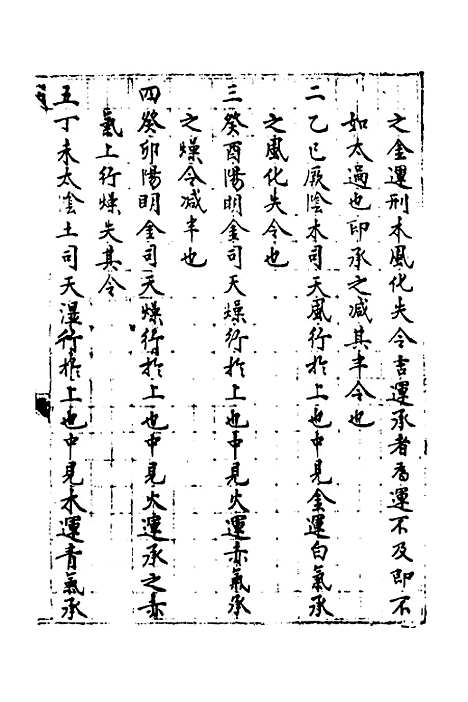 之金運刑木風化失令言運承者為運不及即不
如太過也即承之減其半令也
二乙巳厥陰木司天風行於上也中見金運白氣承
之風化失令也
三癸酉陽明金司天燥行於上也中見火運赤氣承
之燥令減半也
四癸卯陽明金司天燥行於上也中見火運承之赤
氣上行燥失其令
五丁未太陰土司天濕行於上也中見木運青氣承